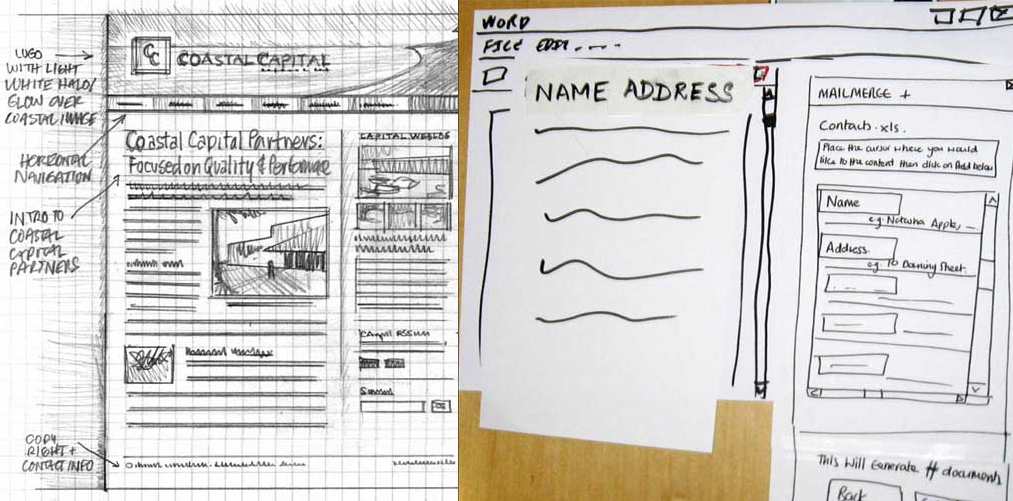 LOGO
WITH LIGHT
WHITE HALO/
GLOW OVER
COASTAL IMAGE
HORIZONTAL
NAVIGATION
INTRO TO
COASTAL
CAPITAL
PARTNERS
COPY
RIGHT +
CONTACT INFO
CC COASTAL CAPITAL
Coastal Capital Partners:
Focused on Quality &
CAPITAL WEBLOG
WORD
FILE EDIT.----
NAME ADDRESS
MAILMERGE +
Contacts.xls.
Place the cursor where you would
like to the content then click on field below
Name
e.g. Apple,
Address.
e.g. 10 Downing Street.
This Will Generate # documents
Back